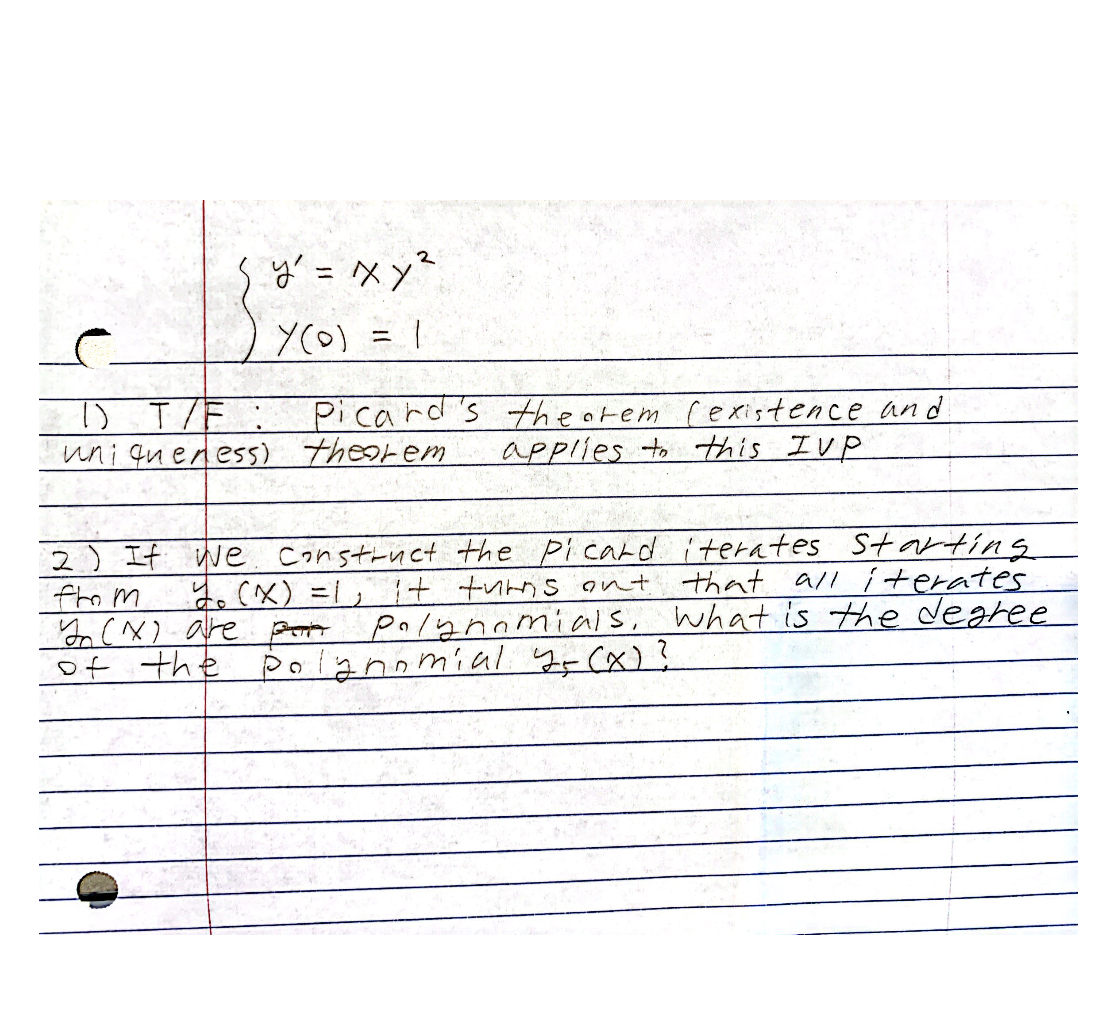 y' = xy²
y(0) = 1
1) T/F: Picard's theorem (existence and
uniqueness) theorem applies to this IVP
2) If we construct the Picard iterates starting
from y₀(x) = 1, it turns out that all iterates
yₙ(x) are polynomials. What is the degree
of the polynomial y₅(x)?